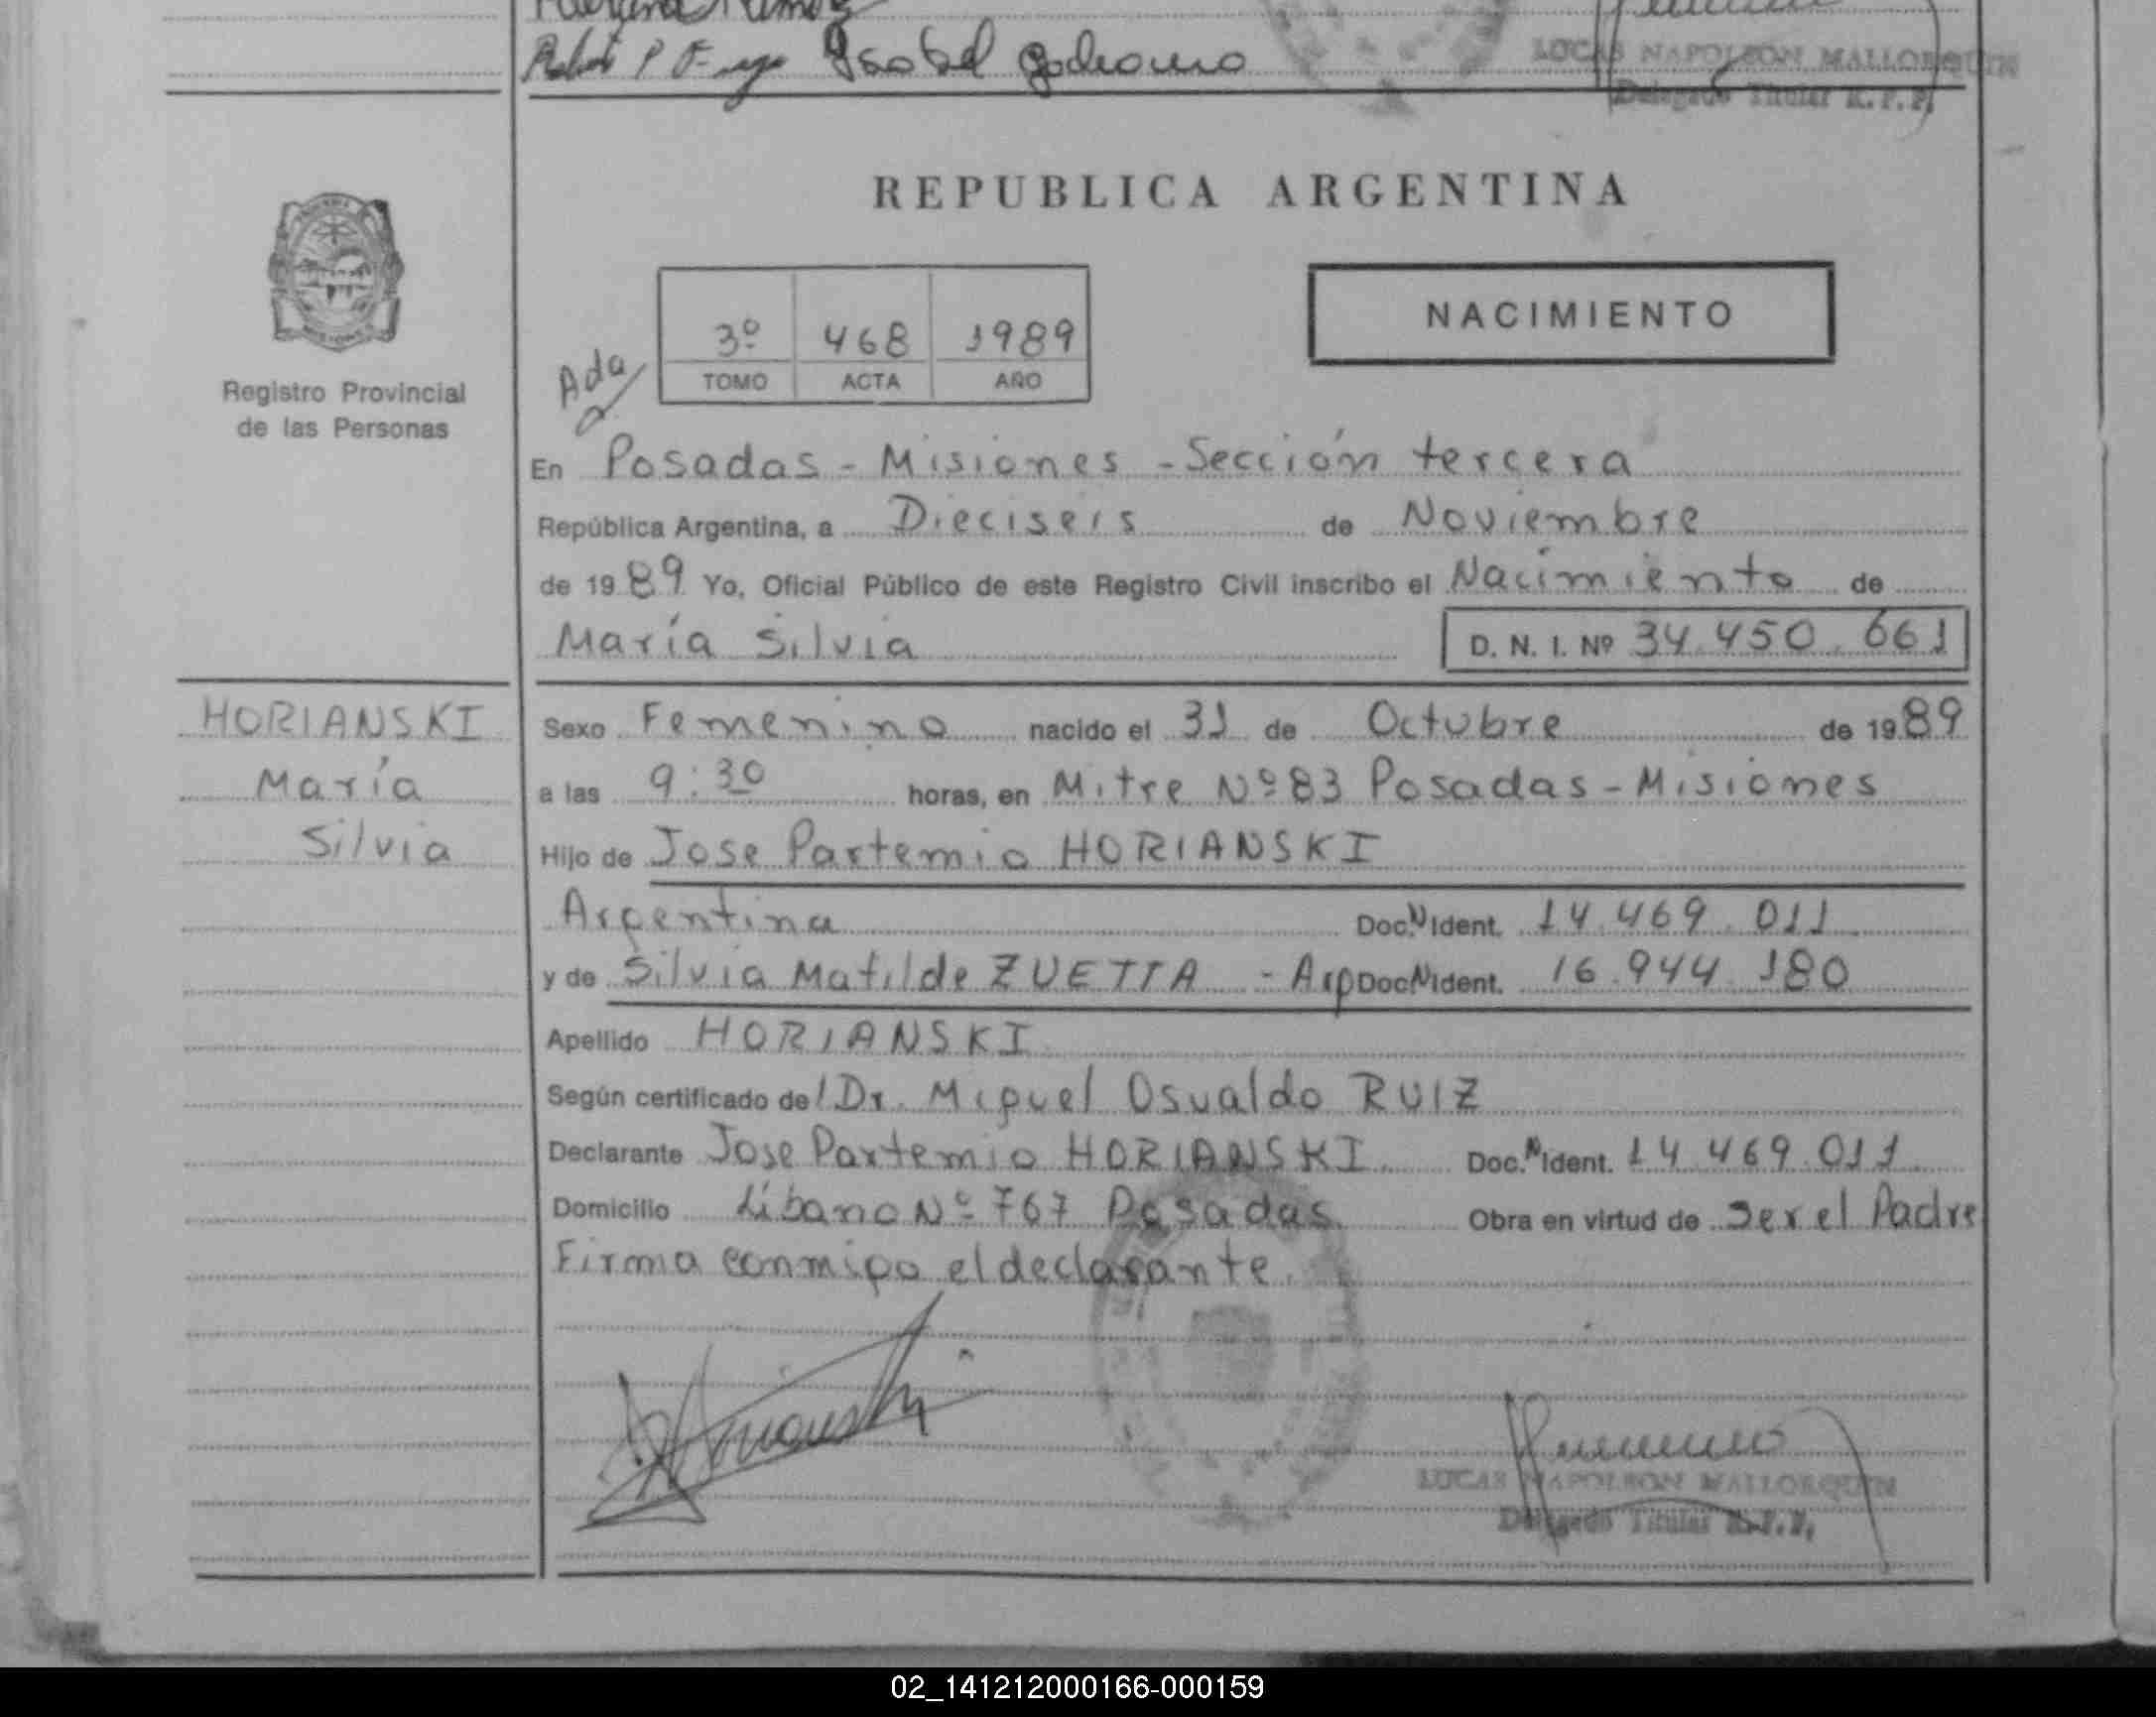 Isabel
LUCAS NAPOLEON MALLORQUIN
Delegado Titular R.P.P.
REPUBLICA ARGENTINA
Registro Provincial
de las Personas
3º 468 1989
TOMO ACTA AÑO
NACIMIENTO
Ada
En Posadas - Misiones - Sección tercera
República Argentina, a Dieciseis de Noviembre
de 1989 Yo, Oficial Público de este Registro Civil inscribo el Nacimiento de
María Silvia D. N. I. Nº 34.450.661
HORIANSKI
María
Silvia
Sexo Femenino nacido el 31 de Octubre de 1989
a las 9:30 horas, en Mitre Nº 83 Posadas - Misiones
Hijo de Jose Partemio HORIANSKI
Argentina Doc.N Ident. 14.469.011
y de Silvia Matilde ZUETTA - Arg Doc N Ident. 16.944.180
Apellido HORIANSKI
Según certificado del Dr. Miguel Osvaldo RUIZ
Declarante Jose Partemio HORIANSKI Doc.N Ident. 14.469.011
Domicilio Líbano Nº 767 Posadas Obra en virtud de Ser el Padre
Firma conmigo el declarante.
LUCAS NAPOLEON MALLORQUIN
Delegado Titular R.P.P.
02_141212000166-000159